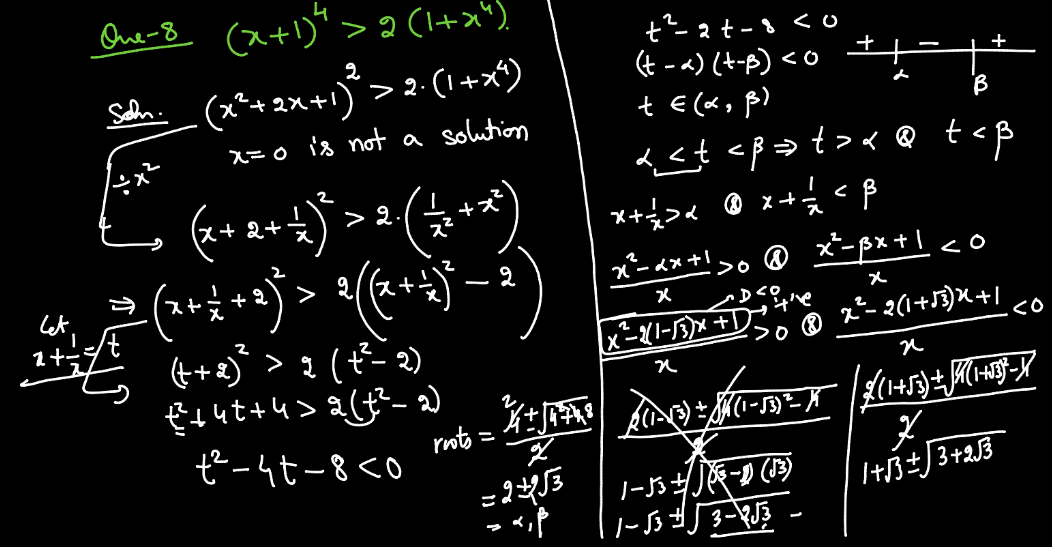 Que-8 (x+1)⁴ > 2(1+x⁴).
Soln. (x²+2x+1)² > 2·(1+x⁴)
x=0 is not a solution
÷x²
(x+2+1/x)² > 2·(1/x²+x²)
⇒ (x+1/x+2)² > 2((x+1/x)² - 2)
Let x+1/x=t
(t+2)² > 2(t²-2)
t²+4t+4 > 2(t²-2)
t²-4t-8<0
roots = (4±√(4²+4·8))/2
= 2±2√3
= α, β
t²-2t-8<0
(t-α)(t-β)<0
+ - +
α β
t ∈ (α, β)
α < t < β ⇒ t > α & t < β
x+1/x>α & x+1/x < β
(x²-αx+1)/x >0 & (x²-βx+1)/x < 0
D<0
+'ve
(x²-2(1-√3)x+1)/x >0 & (x²-2(1+√3)x+1)/x <0
(2(1-√3)±√(4(1-√3)²-4))/2
1-√3±
1-√3±√(3-2√3)
(2(1+√3)±√(4(1+√3)²-4))/2
1+√3±√(3+2√3)